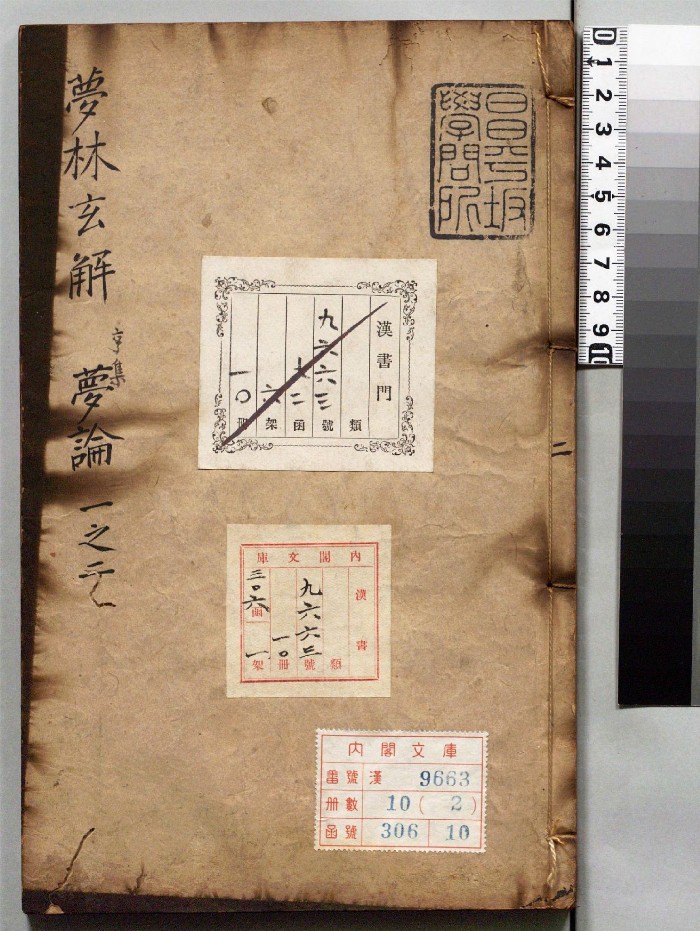 夢林玄解
亨集
夢論 一之二
昌平坂
學問所
漢書門
九六六三
六
一〇
類
號
函
架
冊
二
內閣文庫
漢書
九六六三
一〇
三〇六
一
類
號
冊
函
架
內閣文庫
番號 漢 9663
冊數 10 ( 2 )
函號 306 10
0 1 2 3 4 5 6 7 8 9 10